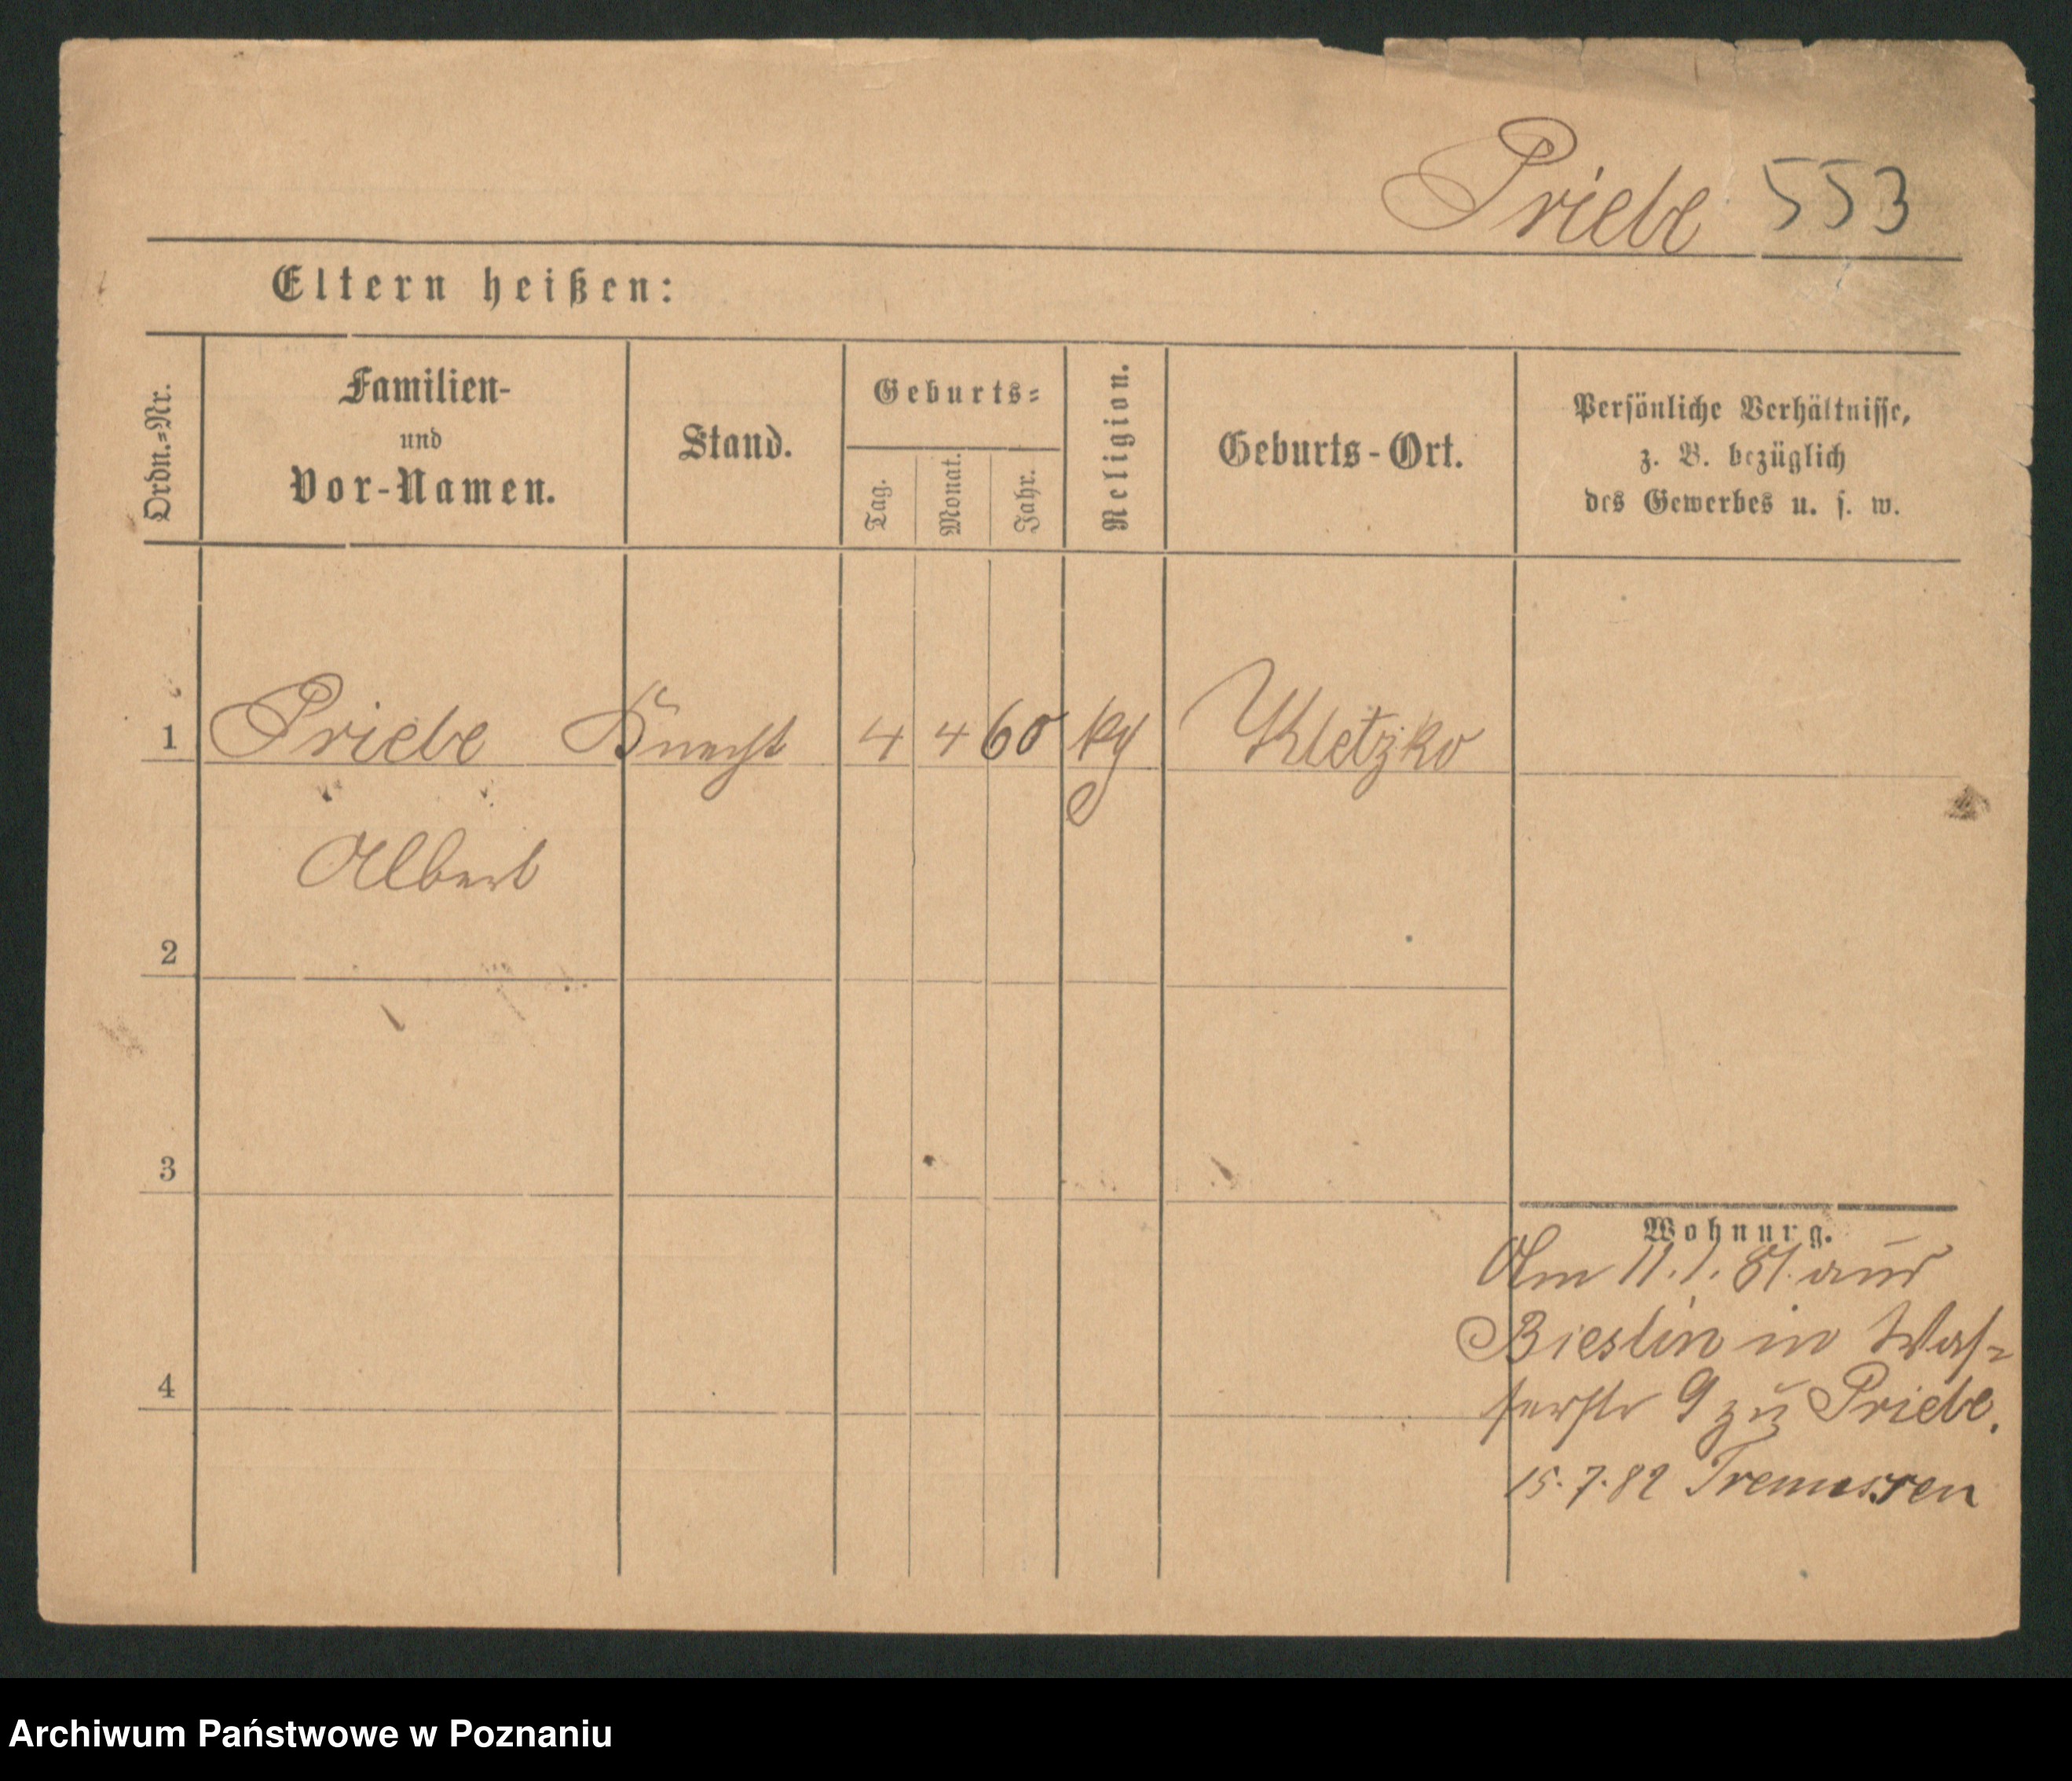 Priebe 553
Eltern heißen:
Ordn.=Nr.
Familien-
und
Vor-Namen.
Stand.
Geburts=
Tag.
Monat.
Jahr.
Religion.
Geburts-Ort.
Persönliche Verhältnisse,
z. B. bezüglich
des Gewerbes u. s. w.
1 Priebe Knecht 4 4 60 kg Kletzko
Albert
2
3
Wohnung.
Am 11.1.81. aus
Bieslin in Was=
serstr 9 zu Priebe.
4
15.7.82 Tremessen
Archiwum Państwowe w Poznaniu